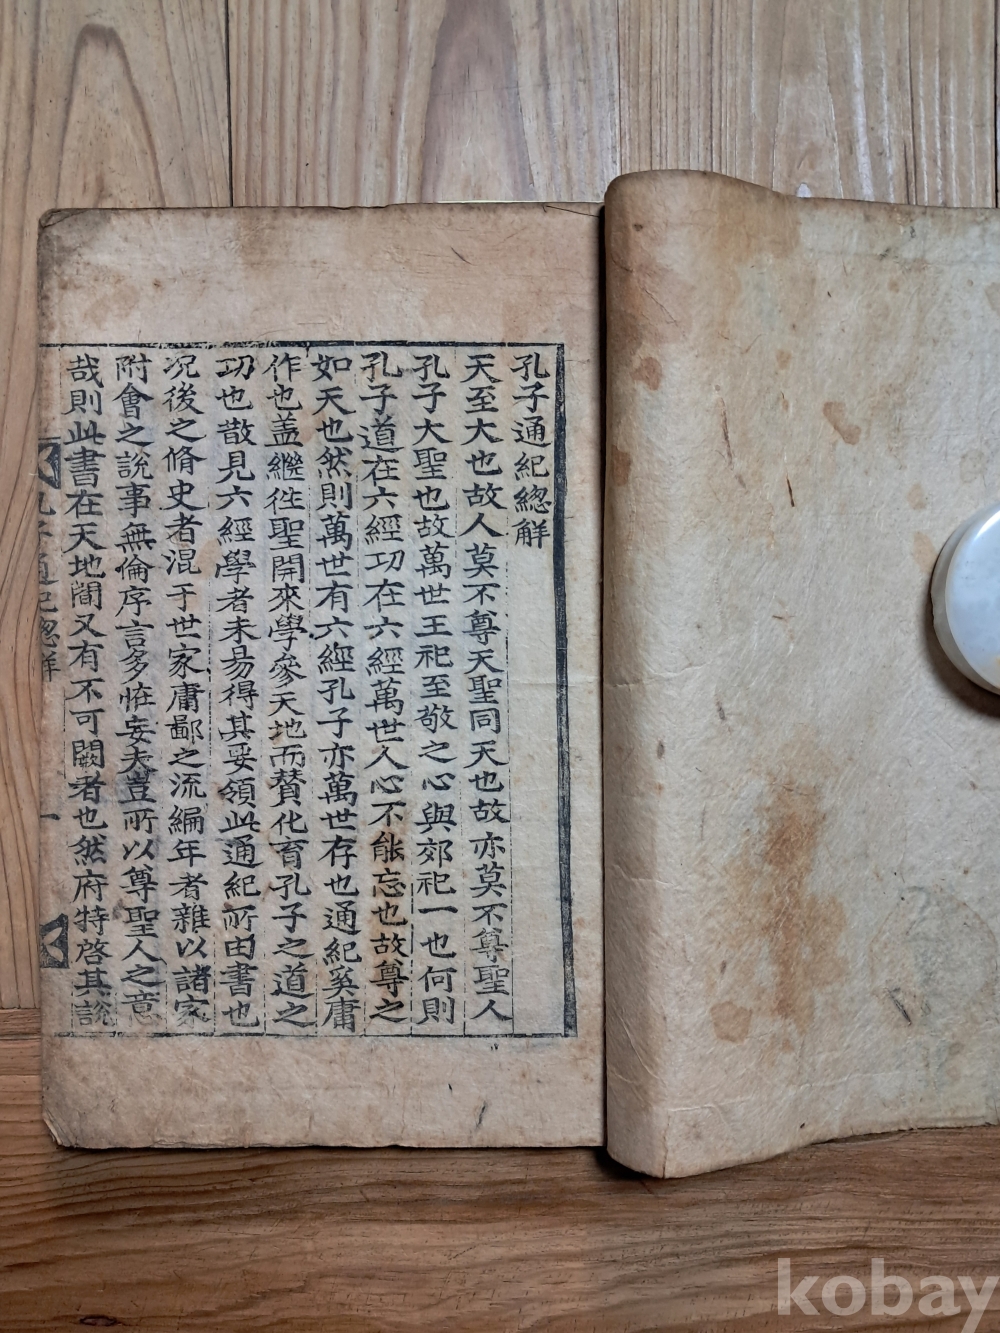 孔子通紀總觧
天至大也故人莫不尊天聖同天也故亦莫不尊聖人
孔子大聖也故萬世王祀至敬之心與郊祀一也何則
孔子道在六經功在六經萬世人心不能忘也故尊之
如天也然則萬世有六經孔子亦萬世存也通紀奚庸
作也盖繼徃聖開來學參天地而賛化育孔子之道之
功也散見六經學者未易得其要領此通紀所由書也
况後之脩史者混于世家庸鄙之流編年者雜以諸家
附會之說事無倫序言多恠妄夫豈所以尊聖人之意
哉則此書在天地間又有不可闕者也然府特啓其說
孔子通紀總觧
一
kobay